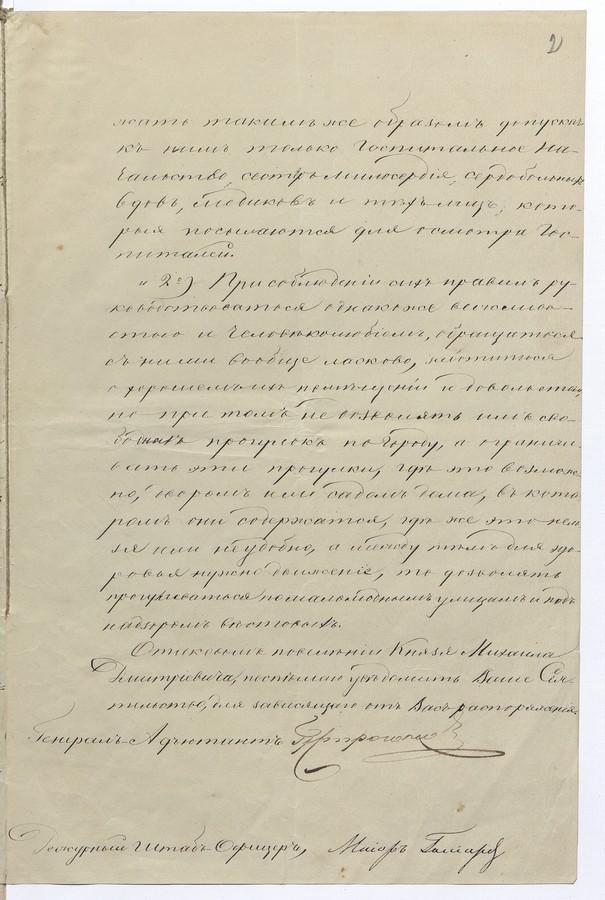 2
жать такимъ же образомъ допуская
къ нимъ только Госпитальное На-
чальство, сестръ милосердія, сердобольныхъ
вдовъ, медиковъ и тѣхъ лицъ, кото-
рыя посылаются для осмотра Гос-
питалей.
„2е) При соблюденіи сихъ правилъ ру-
ководствоваться однакоже вѣжливо-
стью и человѣколюбіемъ, обращаться
съ ними вообще ласково, заботиться
о хорошемъ ихъ помѣщеніи и довольствіи,
но при томъ не дозволять имъ сво-
бодныхъ прогулокъ по городу, а ограничи-
вать эти прогулки, гдѣ это возмож-
но, дворомъ или садомъ дома, въ кото-
ромъ они содержатся, гдѣ же это нель-
зя или неудобно, а между тѣмъ для здо-
ровья нужно движеніе, то дозволять
прогуливаться по малолюднымъ улицамъ и подъ
надзоромъ вѣстовыхъ.
О таковомъ повелѣніи Князя Михаила
Дмитріевича, поспѣшаю увѣдомить Ваше Сія-
тельство, для зависящаго отъ Васъ распоряженія.
Генералъ-Адъютантъ
Дежурный Штабъ-Офицеръ, Маіоръ